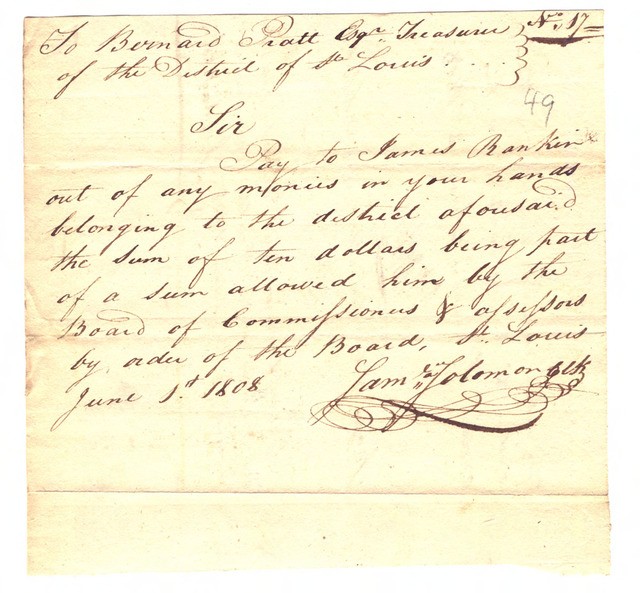 To Bernard Pratt Esqr Treasurer
No. 17
of the District of St Louis . . . .
49
Sir
Pay to James Rankin
out of any monies in your hands
belonging to the district afousaid
the sum of ten dollars being part
of a sum allowed him by the
Board of Commissioners & assessors
by order of the Board, St. Louis
June 1st 1808
Saml Solomon Clk